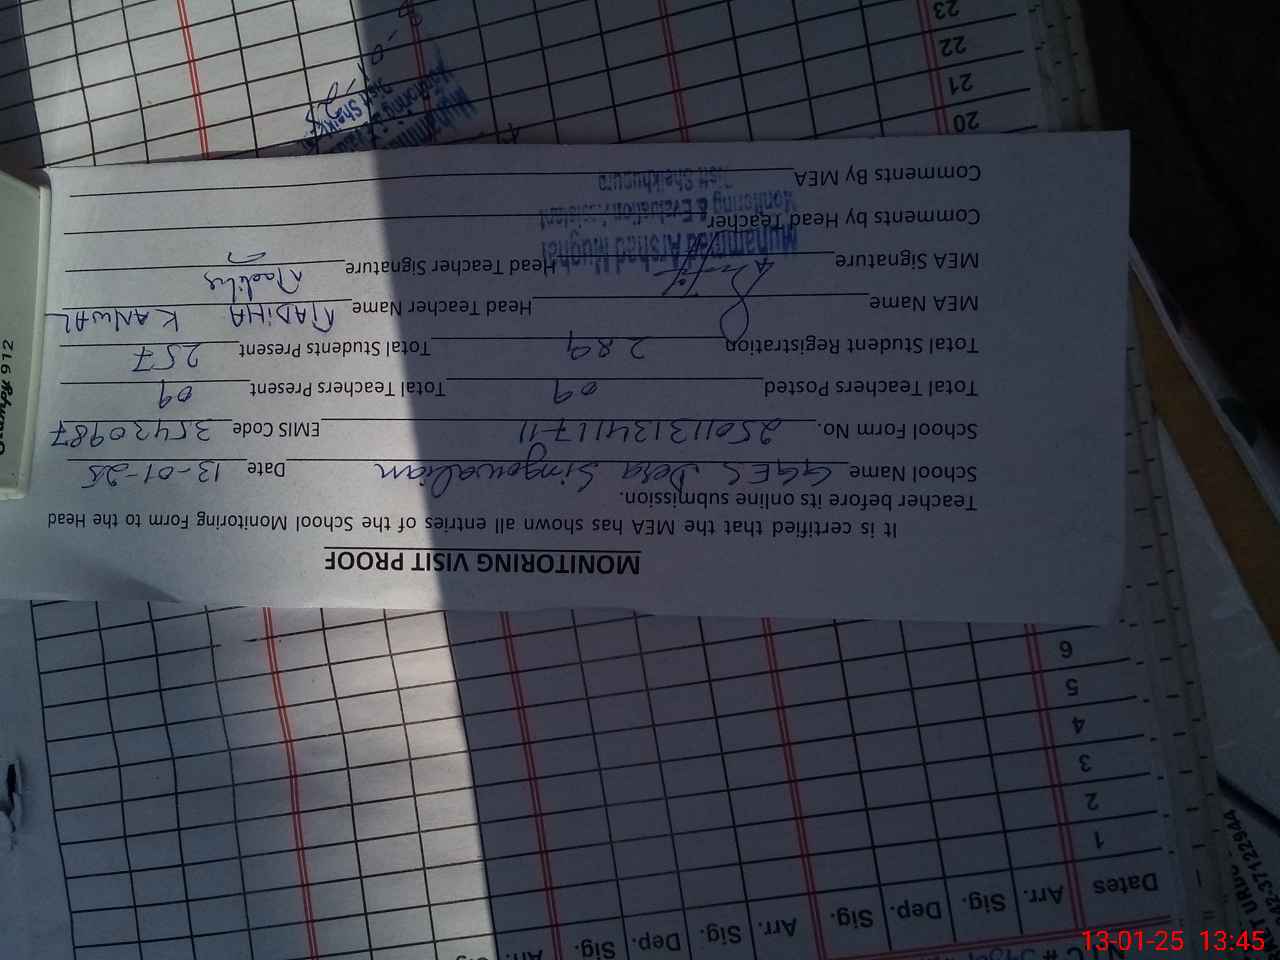 MONITORING VISIT PROOF
It is certified that the MEA has shown all entries of the School Monitoring Form to the Head
Teacher before its online submission.
School Name GGES Dera Singowalian Date 13-01-25
School Form No. 25011313411 17-11 EMIS Code 35430987
Total Teachers Posted 09 Total Teachers Present 09
Total Student Registration 289 Total Students Present 257
MEA Name Head Teacher Name MADIHA KANWAL
MEA Signature Head Teacher Signature Madiha
Comments by Head Teacher
Comments By MEA
Muhammad Arshad Mughal
Monitoring & Evaluation Assistant
Distt Sheikhupura
20
21
22
23
Dates Arr. Sig. Dep. Sig. Arr. Sig. Dep. Sig. Arr.
1
2
3
4
5
6
912
13-01-25 13:45